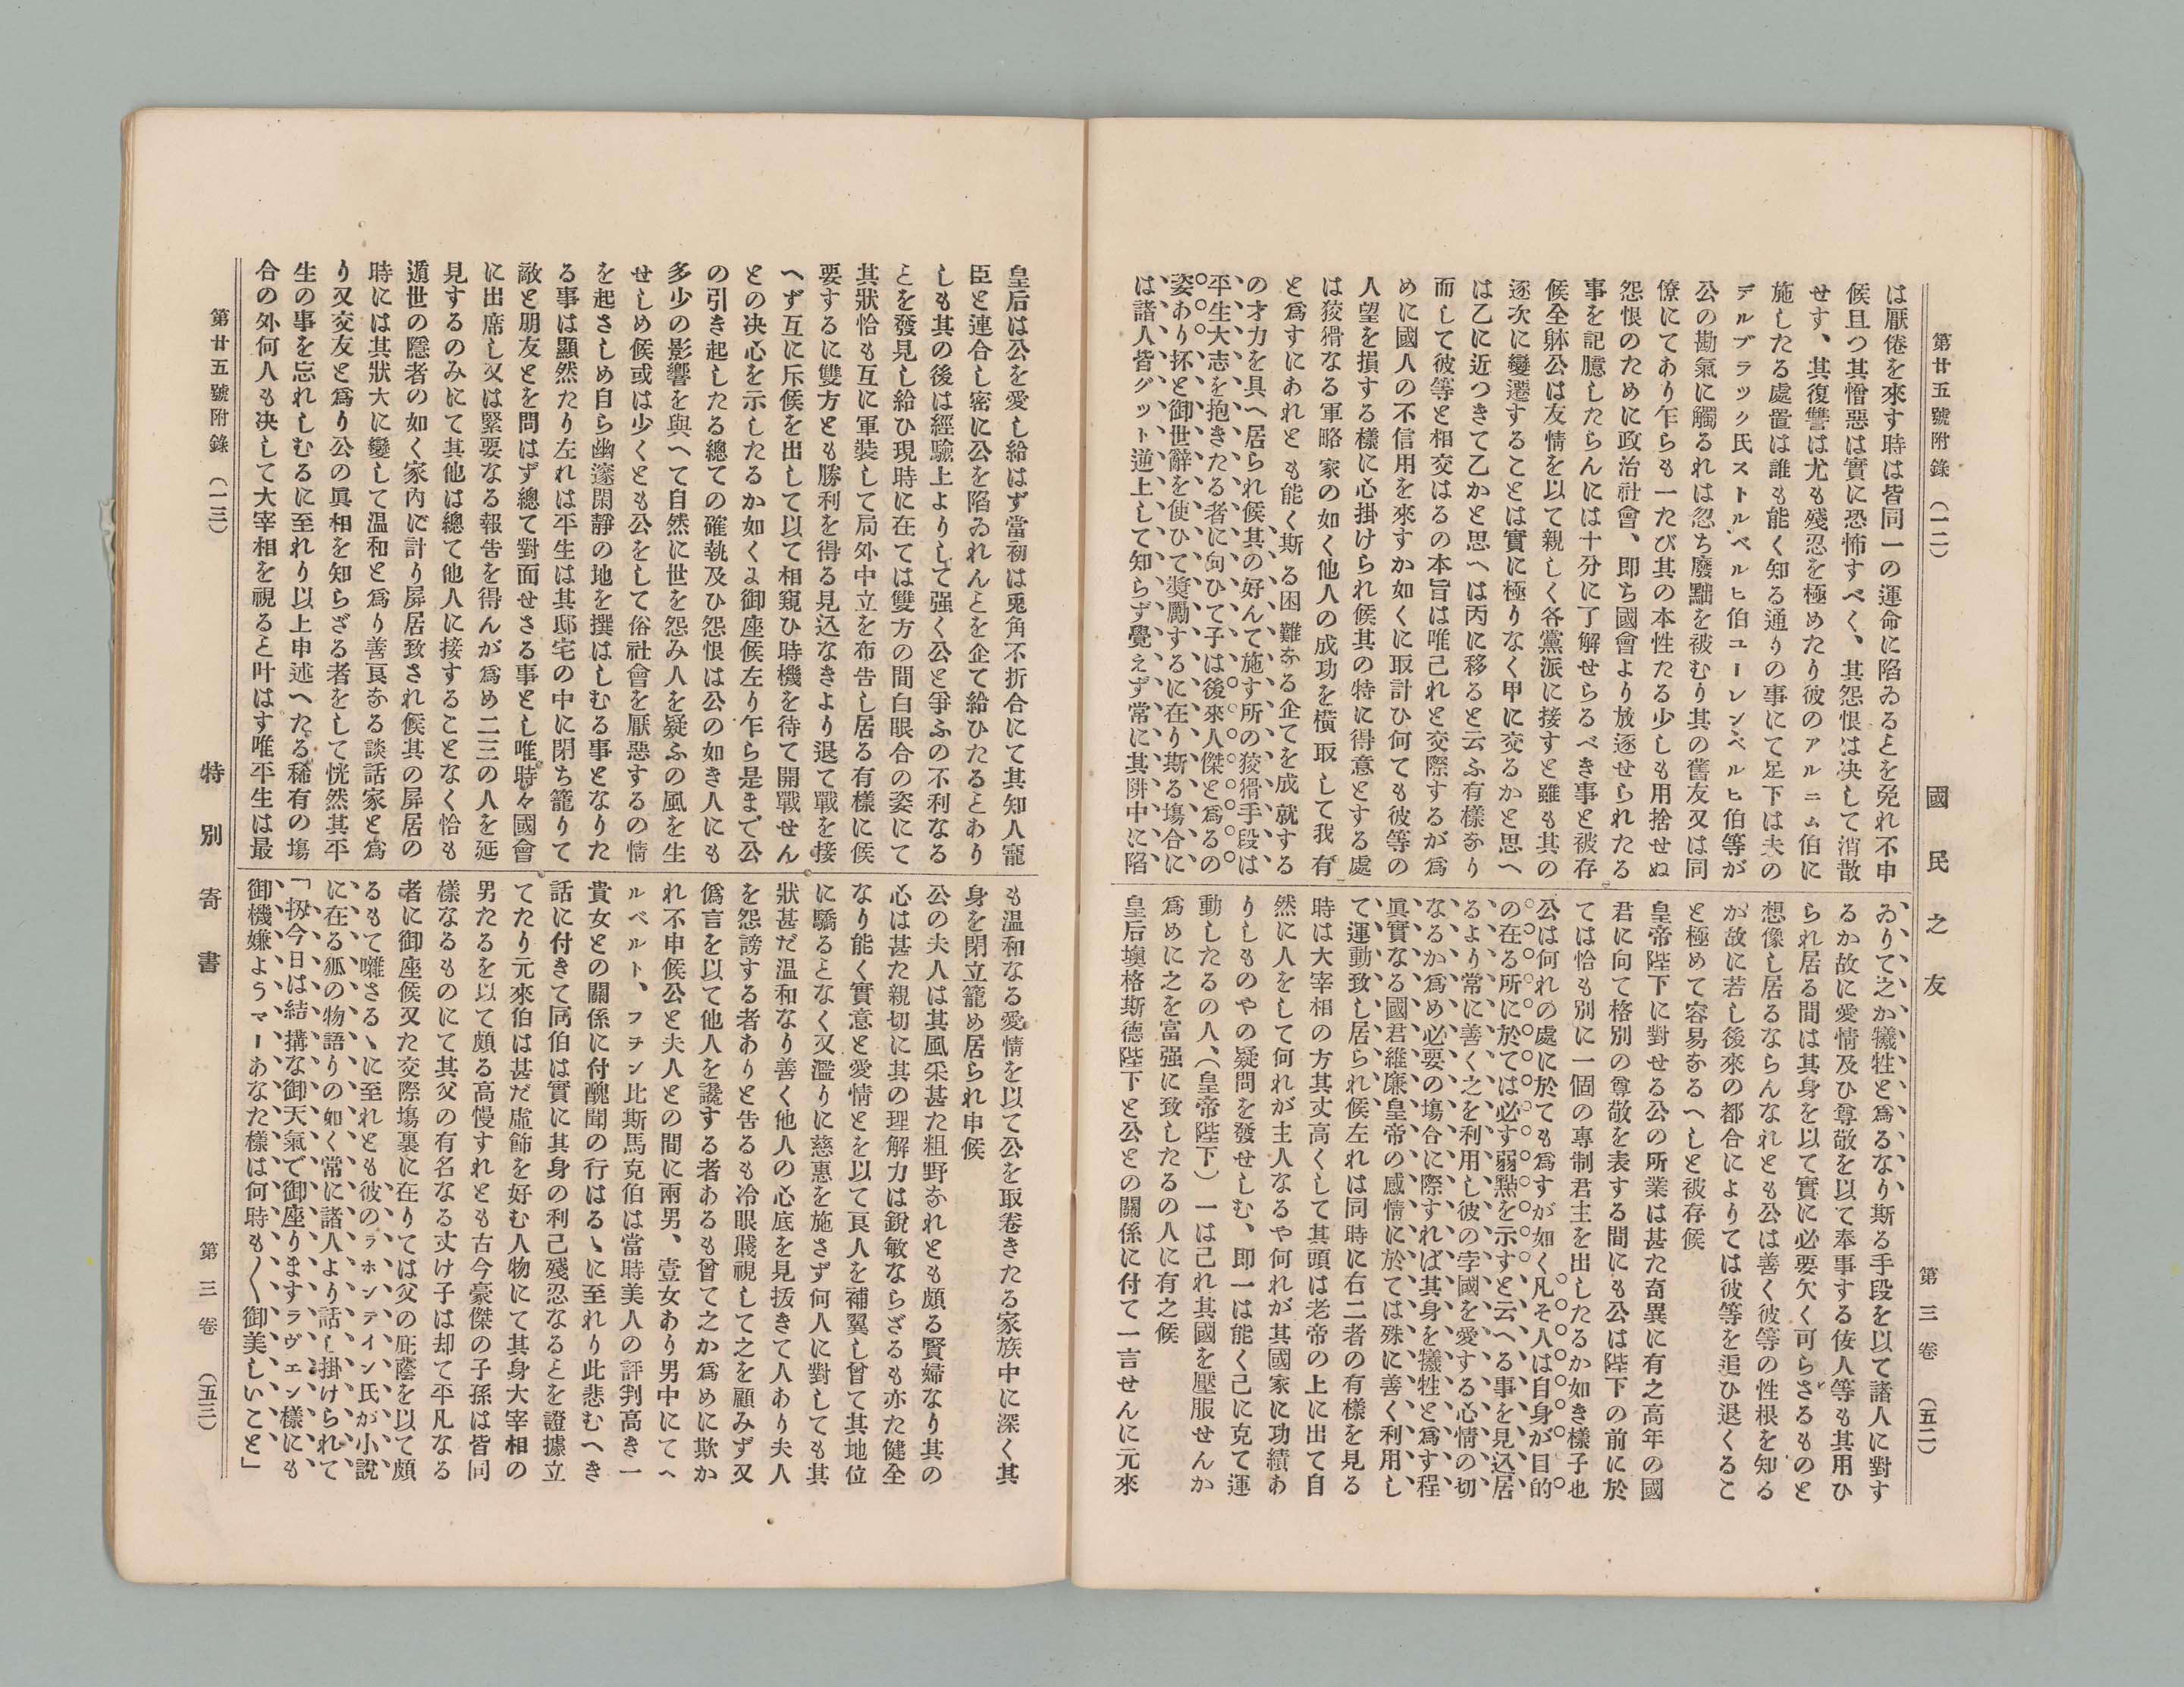 第廿五號附錄 (一二)
國民之友
第三卷 (五二)
は厭倦を來す時は皆同一の運命に陷ゐるとを免れ不申
候且つ其憎惡は實に恐怖すべく、其怨恨は决して消散
せす、其復讐は尤も殘忍を極めたり彼のアルニム伯に
施したる處置は誰も能く知る通りの事にて足下は夫の
デルブラック氏ストルベルヒ伯ユーレンベルヒ伯等が
公の勘氣に觸るれは忽ち廢黜を被むり其の舊友又は同
僚にてあり乍らも一たび其の本性たる少しも用捨せぬ
怨恨のために政治社會、即ち國會より放逐せられたる
事を記臆したらんには十分に了解せらるべき事と被存
候全躰公は友情を以て親しく各黨派に接すと雖も其の
逐次に變遷することは實に極りなく甲に交るかと思へ
は乙に近つきて乙かと思へは丙に移ると云ふ有樣なり
而して彼等と相交はるの本旨は唯己れと交際するが爲
めに國人の不信用を來すか如くに取計ひ何ても彼等の
人望を損する樣に心掛けられ候其の特に得意とする處
は狡猾なる軍略家の如く他人の成功を橫取して我有
と爲すにあれとも能く斯る困難なる企てを成就する
の才力を具へ居られ候其の好んて施す所の狡猾手段は
平生大志を抱きたる者に向ひて子は後來人傑と爲るの
姿あり抔と御世辭を使ひて奬勵するに在り斯る塲合に
は諸人皆グット逆上して知らず覺えず常に其阱中に陷
ゐりて之か犧牲と爲るなり斯る手段を以て諸人に對す
るか故に愛情及ひ尊敬を以て奉事する侫人等も其用ひ
られ居る間は其身を以て實に必要欠く可らさるものと
想像し居るならんなれとも公は善く彼等の性根を知る
が故に若し後來の都合によりては彼等を追ひ退くるこ
と極めて容易なるへしと被存候
皇帝陛下に對せる公の所業は甚た奇異に有之高年の國
君に向て格別の尊敬を表する間にも公は陛下の前に於
ては恰も別に一個の專制君主を出したるか如き樣子也
公は何れの處に於ても爲すが如く凡そ人は自身が目的
の在る所に於ては必す弱㸃を示すと云へる事を見込居
るより常に善く之を利用し彼の孛國を愛する心情の切
なるか爲め必要の塲合に際すれば其身を犧牲と爲す程
眞實なる國君維廉皇帝の感情に於ては殊に善く利用し
て運動致し居られ候左れは同時に右二者の有樣を見る
時は大宰相の方其丈高くして其頭は老帝の上に出て自
然に人をして何れが主人なるや何れが其國家に功績あ
りしものやの疑問を發せしむ、即一は能く己に克て運
動したるの人、(皇帝陛下) 一は己れ其國を壓服せんか
爲めに之を富强に致したるの人に有之候
皇后墺格斯德陛下と公との關係に付て一言せんに元來
皇后は公を愛し給はず當初は兎角不折合にて其知人寵
臣と連合し密に公を陷ゐれんとを企て給ひたるとあり
しも其の後は經驗上よりして强く公と爭ふの不利なる
とを發見し給ひ現時に在ては雙方の間白眼合の姿にて
其狀恰も互に軍裝して局外中立を布告し居る有樣に候
要するに雙方とも勝利を得る見込なきより退て戰を接
へず互に斥候を出して以て相窺ひ時機を待て開戰せん
との决心を示したるか如くに御座候左り乍ら是まで公
の引き起したる總ての確執及ひ怨恨は公の如き人にも
多少の影響を與へて自然に世を怨み人を疑ふの風を生
せしめ候或は少くとも公をして俗社會を厭惡するの情
を起さしめ自ら幽邃閑靜の地を撰はしむる事となりた
る事は顯然たり左れは平生は其邸宅の中に閉ち籠りて
敵と朋友とを問はず總て對面せさる事とし唯時々國會
に出席し又は緊要なる報告を得んが爲め二三の人を延
見するのみにて其他は總て他人に接することなく恰も
遁世の隱者の如く家内に計り屏居致され候其の屏居の
時には其狀大に變して溫和と爲り善良なる談話家と爲
り又交友と爲り公の眞相を知らざる者をして恍然其平
生の事を忘れしむるに至れり以上申述へたる稀有の塲
合の外何人も决して大宰相を視ると叶はす唯平生は最
も溫和なる愛情を以て公を取卷きたる家族中に深く其
身を閉立籠め居られ申候
公の夫人は其風采甚た粗野なれとも頗る賢婦なり其の
心は甚た親切に其の理解力は銳敏ならざるも亦た健全
なり能く實意と愛情とを以て良人を補翼し曾て其地位
に驕るとなく又濫りに慈惠を施さず何人に對しても其
狀甚だ溫和なり善く他人の心底を見拔きて人あり夫人
を怨謗する者ありと告るも冷眼賤視して之を顧みず又
僞言を以て他人を讒する者あるも曾て之か爲めに欺か
れ不申候公と夫人との間に兩男、壹女あり男中にてヘ
ルベルト、フヲン比斯馬克伯は當時美人の評判高き一
貴女との關係に付醜聞の行はるゝに至れり此悲むへき
話に付きて同伯は實に其身の利己殘忍なるとを證據立
てたり元來伯は甚だ虛飾を好む人物にて其身大宰相の
男たるを以て頗る高慢すれとも古今豪傑の子孫は皆同
樣なるものにて其父の有名なる丈け子は却て平凡なる
者に御座候又た交際塲裏に在りては父の庇蔭を以て頗
るもて囃さるゝに至れとも彼のラホンテイン氏が小說
に在る狐の物語りの如く常に諸人より話し掛けられて
「扨今日は結搆な御天氣で御座りますラヴェン樣にも
御機嫌ようマーあなた樣は何時も〱御美しいこと」
第廿五號附錄 (一三)
特別寄書
第三卷 (五三)